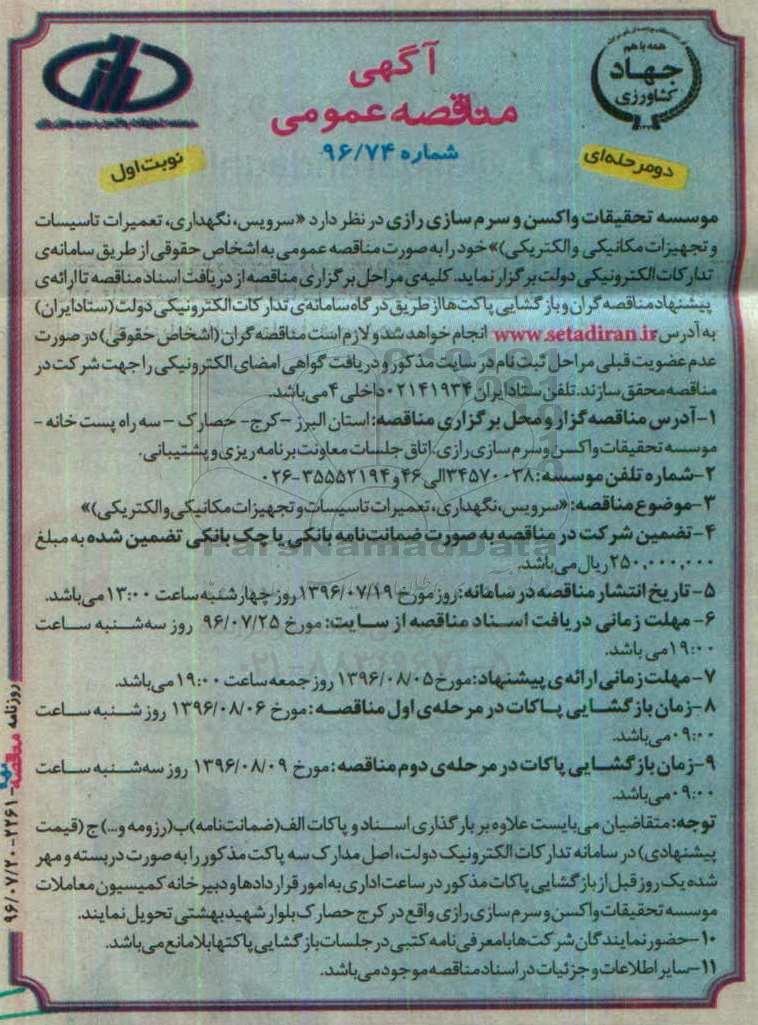 همه با هم
جهاد
کشاورزی
آگهی
مناقصه عمومی
شماره ۹۶/۷۴
دو مرحله‌ای
نوبت اول
موسسه تحقیقات واکسن و سرم سازی رازی در نظر دارد «سرویس، نگهداری، تعمیرات تاسیسات
و تجهیزات مکانیکی و الکتریکی)» خود را به صورت مناقصه عمومی به اشخاص حقوقی از طریق سامانه‌ی
تدارکات الکترونیکی دولت برگزار نماید. کلیه‌ی مراحل برگزاری مناقصه از دریافت اسناد مناقصه تا ارائه‌ی
پیشنهاد مناقصه گران و بازگشایی پاکت‌ها از طریق درگاه سامانه‌ی تدارکات الکترونیکی دولت (ستاد ایران)
به آدرس www.setadiran.ir انجام خواهد شد و لازم است مناقصه گران (اشخاص حقوقی) در صورت
عدم عضویت قبلی مراحل ثبت نام در سایت مذکور و دریافت گواهی امضای الکترونیکی را جهت شرکت در
مناقصه محقق سازند. تلفن ستاد ایران ۰۲۱۴۱۹۳۴ داخلی ۴ می‌باشد.
۱- آدرس مناقصه گزار و محل برگزاری مناقصه: استان البرز - کرج - حصارک - سه راه پست خانه -
موسسه تحقیقات واکسن و سرم سازی رازی. اتاق جلسات معاونت برنامه ریزی و پشتیبانی.
۲- شماره تلفن موسسه: ۳۴۵۷۰۰۳۸ الی ۴۶ و ۳۵۵۵۲۱۹۴-۰۲۶
۳- موضوع مناقصه: «سرویس، نگهداری، تعمیرات تاسیسات و تجهیزات مکانیکی و الکتریکی)»
۴- تضمین شرکت در مناقصه به صورت ضمانت‌نامه بانکی یا چک بانکی تضمین شده به مبلغ
۲۵۰,۰۰۰,۰۰۰ ریال می‌باشد.
۵- تاریخ انتشار مناقصه در سامانه: روز مورخ ۱۳۹۶/۰۷/۱۹ روز چهارشنبه ساعت ۱۳:۰۰ می‌باشد.
۶- مهلت زمانی دریافت اسناد مناقصه از سایت: مورخ ۹۶/۰۷/۲۵ روز سه‌شنبه ساعت
۱۹:۰۰ می باشد.
۷- مهلت زمانی ارائه‌ی پیشنهاد: مورخ ۱۳۹۶/۰۸/۰۵ روز جمعه ساعت ۱۹:۰۰ می‌باشد.
۸- زمان بازگشایی پاکات در مرحله‌ی اول مناقصه: مورخ ۱۳۹۶/۰۸/۰۶ روز شنبه ساعت
۰۹:۰۰ می‌باشد.
۹- زمان بازگشایی پاکات در مرحله‌ی دوم مناقصه: مورخ ۱۳۹۶/۰۸/۰۹ روز سه‌شنبه ساعت
۰۹:۰۰ می‌باشد.
توجه: متقاضیان می‌بایست علاوه بر بارگذاری اسناد و پاکات الف (ضمانت‌نامه) ب (رزومه و...) ج (قیمت
پیشنهادی) در سامانه تدارکات الکترونیک دولت، اصل مدارک سه پاکت مذکور را به صورت دربسته و مهر
شده یک روز قبل از بازگشایی پاکات مذکور در ساعت اداری به امور قراردادها و دبیرخانه کمیسیون معاملات
موسسه تحقیقات واکسن و سرم سازی رازی واقع در کرج حصارک بلوار شهید بهشتی تحویل نمایند.
۱۰- حضور نمایندگان شرکت‌ها با معرفی نامه کتبی در جلسات بازگشایی پاکتها بلامانع می‌باشد.
۱۱- سایر اطلاعات و جزئیات در اسناد مناقصه موجود می‌باشد.
روزنامه مناقصه - ۲۲۶۱ - ۹۶/۰۷/۲۰
ParsNamadData
۰۲۱-۸۸۳۴۹۶۷۰-۵